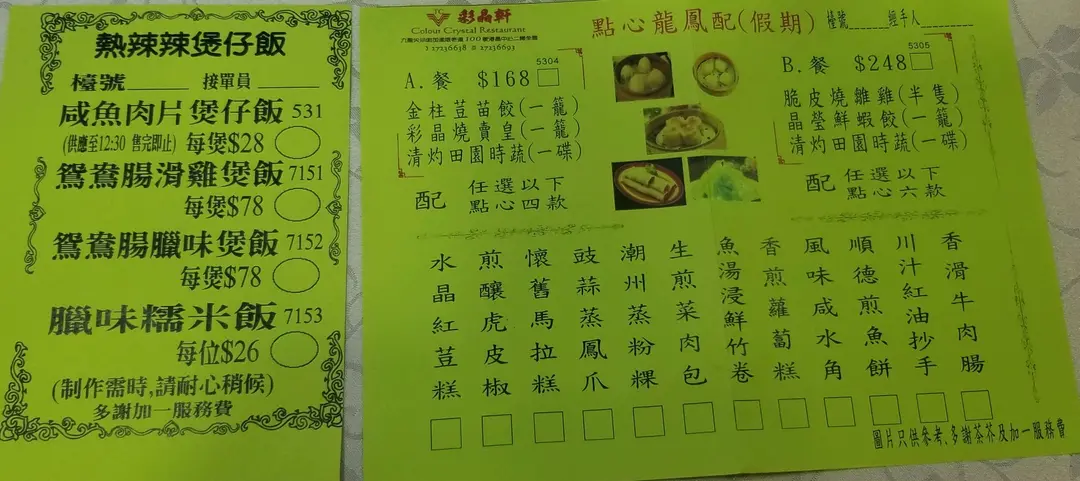 熱辣辣煲仔飯
檯號______ 接單員______
咸魚肉片煲仔飯 531
(供應至12:30 售完即止) 每煲$28
鴛鴦腸滑雞煲飯 7151
每煲$78
鴛鴦腸臘味煲飯 7152
每煲$78
臘味糯米飯 7153
每位$26
(制作需時,請耐心稍候)
多謝加一服務費
彩晶軒
Colour Crystal Restaurant
點心龍鳳配(假期)
檯號______ 經手人______
5304
A. 餐 $168
金柱荳苗餃(一籠)
彩晶燒賣皇(一籠)
清灼田園時蔬(一碟)
配 任選以下
點心四款
5305
B. 餐 $248
脆皮燒雛雞(半隻)
晶瑩鮮蝦餃(一籠)
清灼田園時蔬(一碟)
配 任選以下
點心六款
香滑牛肉腸
川汁紅油抄手
順德煎魚餅
風味咸水角
香煎蘿蔔糕
魚湯浸鮮竹卷
生煎菜肉包
潮州蒸粉粿
豉蒜蒸鳳爪
懷舊馬拉糕
煎釀虎皮椒
水晶紅荳糕
圖片只供參考、多謝茶芥及加一服務費